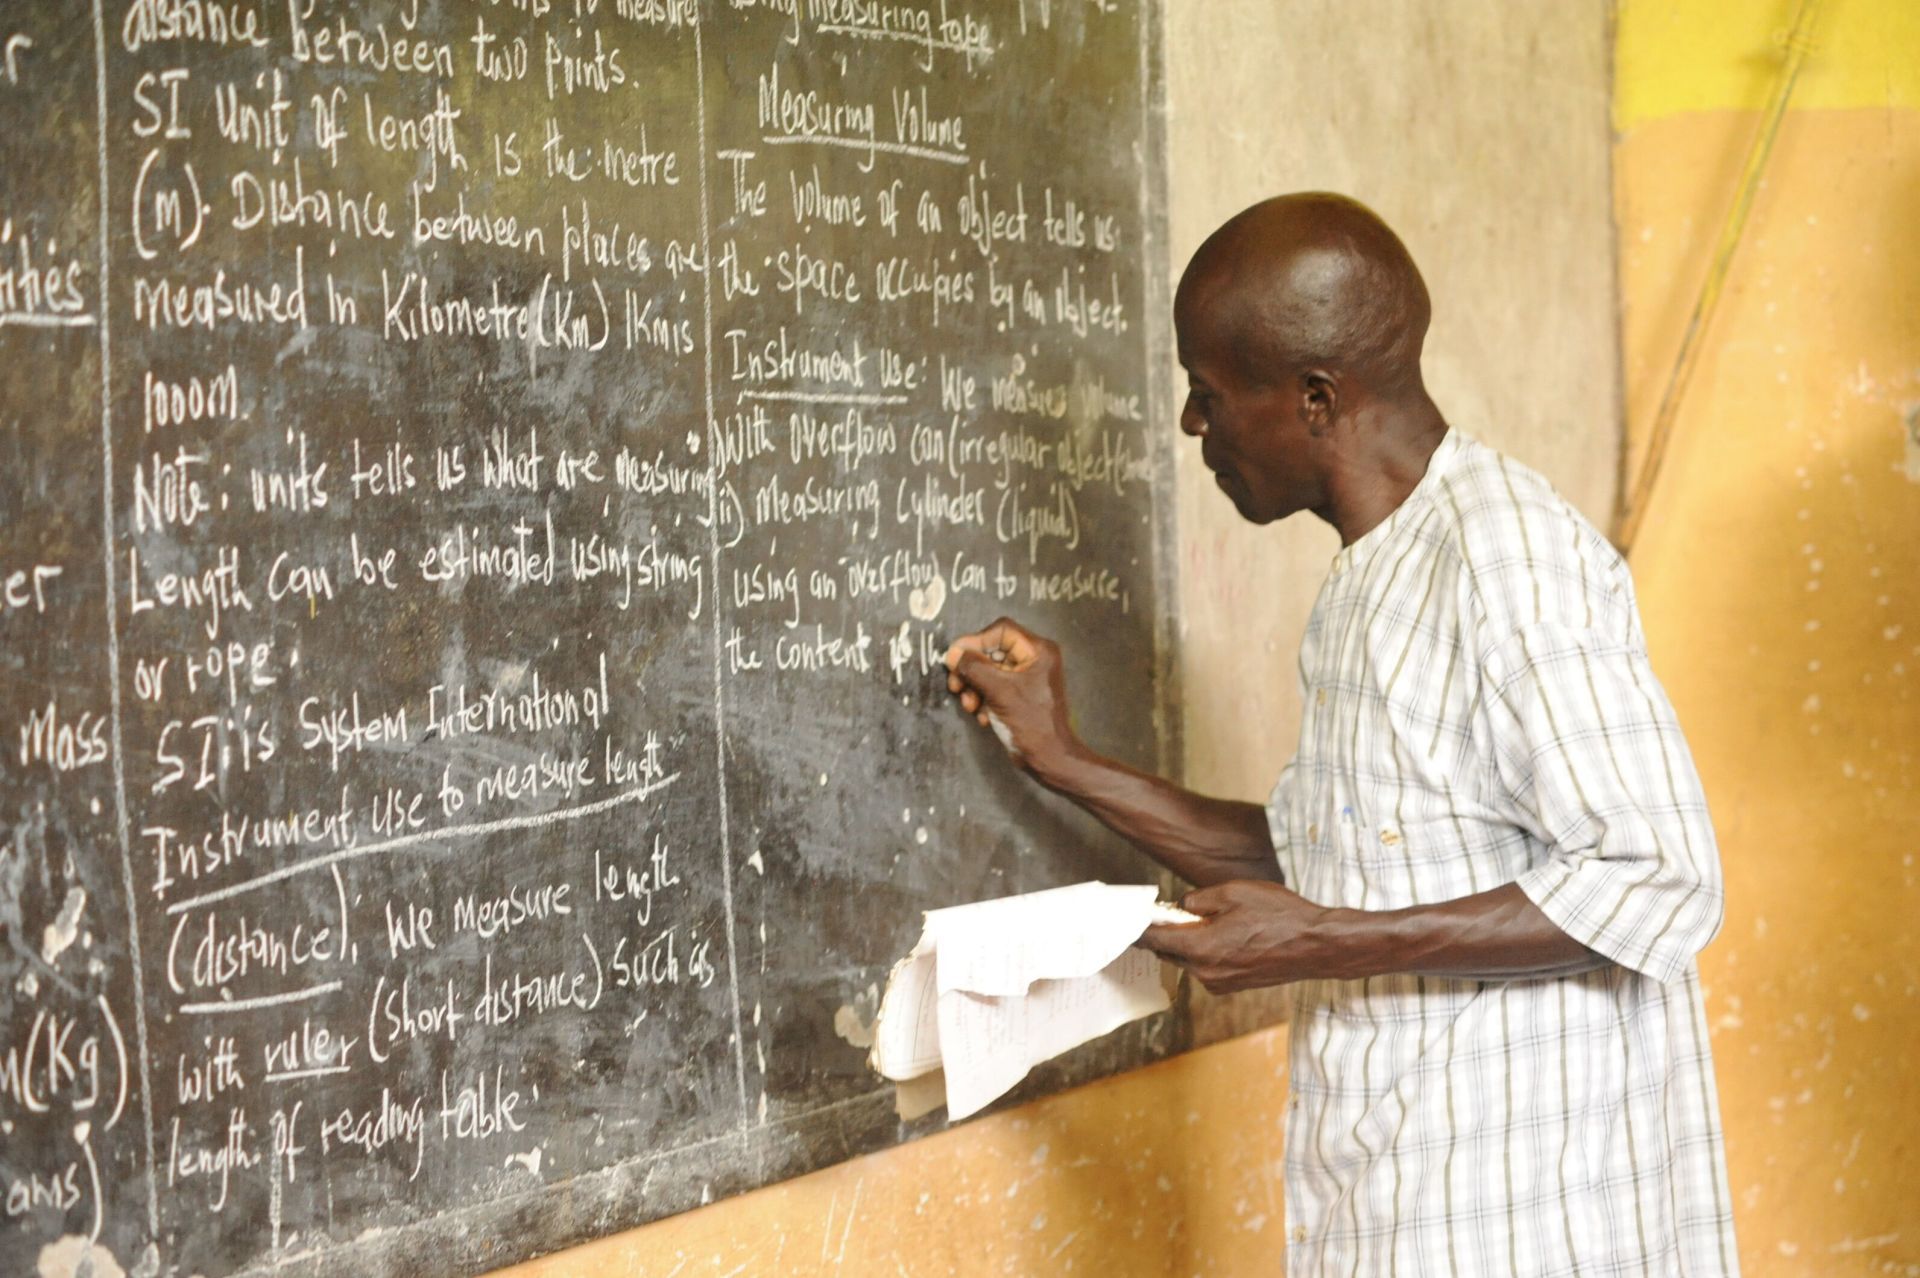 er
tities
ter
Mass
(Kg)
ams)
to measure
distance between two points.
SI Unit of length is the metre
(m). Distance between places are
measured in Kilometre (Km) 1Km is
1000m.
Note: units tells us what are measuring
Length can be estimated using string
or rope.
SI: is System International
Instrument use to measure length
(distance): We measure length
with ruler (short distance) such as
length of reading table.
using measuring tape.
Measuring Volume
The volume of an object tells us
the space occupies by an object.
Instrument use: We measure volume
i) With overflow can (irregular object
ii) Measuring Cylinder (liquid)
using an overflow can to measure,
the content